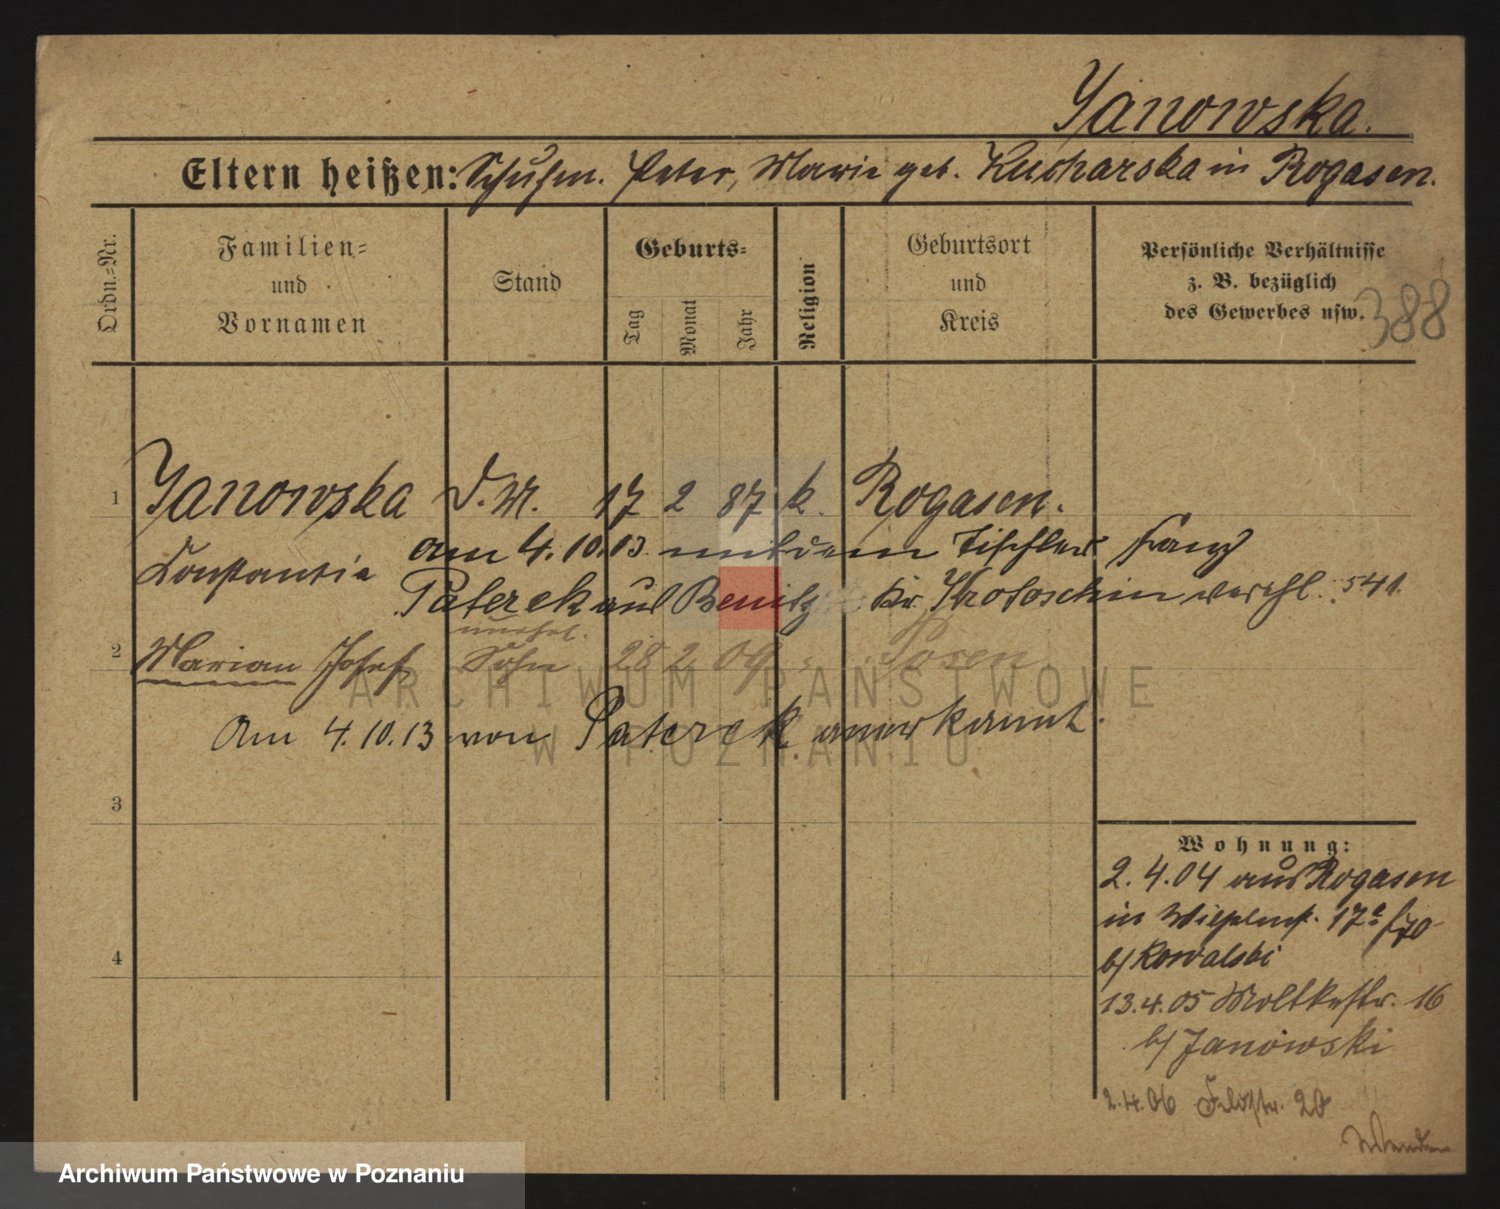 Janowska.
Eltern heißen: Schuhm. Peter, Marie geb. Kucharska in Rogasen.
Ordn.=Nr.
Familien=
und
Vornamen
Stand
Geburts=
Tag
Monat
Jahr
Religion
Geburtsort
und
Kreis
Persönliche Verhältnisse
z. B. bezüglich
des Gewerbes usw.
388
1 Janowska D.M. 17 2 87 k. Rogasen.
Constantia
am 4.10.13 mit dem Tischler Franz
Paterek aus Benitz Kr. Krotoschin verehl. 541.
unehel.
2 Marian Josef Sohn 28 2 09 Posen
Am 4.10.13 von Paterek anerkannt.
3
4
Wohnung:
2.4.04 aus Rogasen
in Wilhelmst. 17a
b/ Kowalski
13.4.05 Moltkestr. 16
b/ Janowski
2.4.06 Feldstr. 20
ARCHIWUM PAŃSTWOWE
W POZNANIU
Archiwum Państwowe w Poznaniu